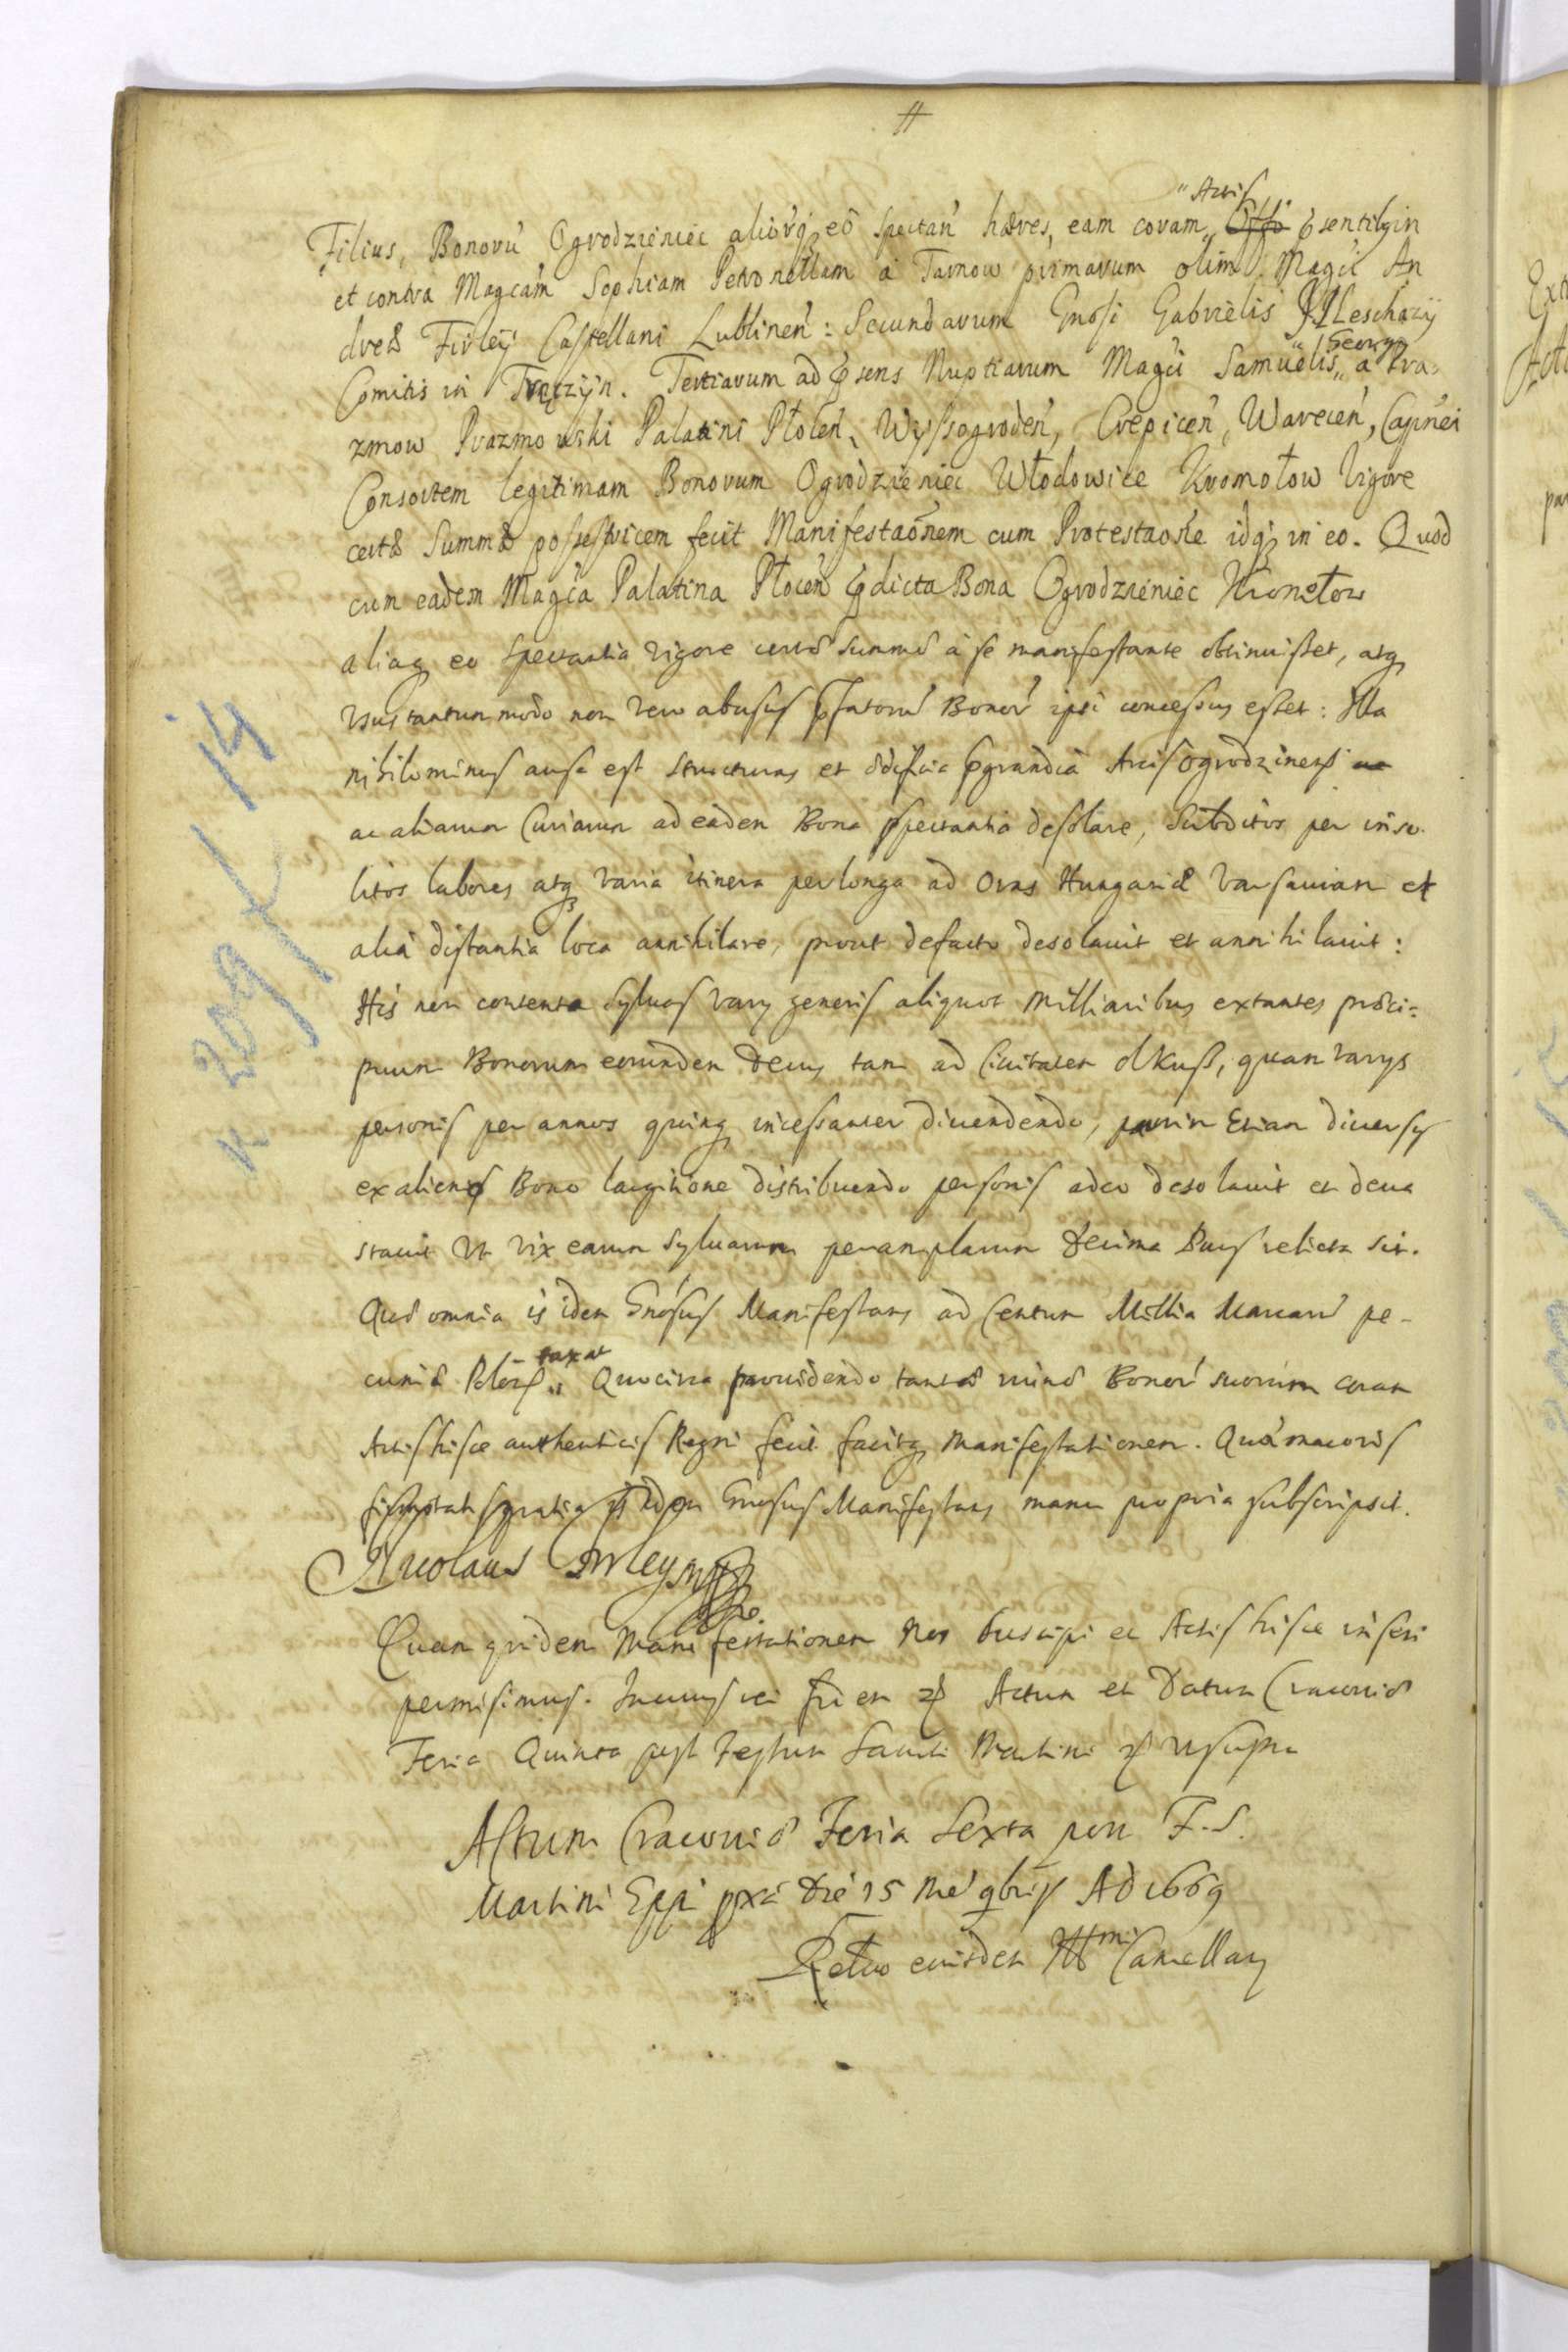 #
"Actis
Filius, Bonorũ Ogrodzieniec aliorq̃ eõ spectañ hæres, eam coram " Offo pñsentibg in
et contra Magcam Sophiam Petronellam à Tarnow primarum olim Magci An
dreæ Firleÿ Castellani Lublineñ: Secundarum Gnosi Gabrielis Illeschazÿ
" Georgy
Comitis in Tręczÿn. Tertiarum ad pñsens Nuptiarum Magci Samuelis " à Pra=
zmow Prazmowski Palatini Płoceñ, Wyssogrodeñ, Crepiceñ, Wareceñ, Capnei
Consortem legitimam Bonorum Ogrodzieniec Włodowice Kromołow Vigore
certæ Summæ possestricem fecit Manifestaõnem cum Protestaõne idq̃ in eo. Quod
cum eadem Magca Palatina Płoceñ pdicta Bona Ogrodzieniec Kromołow
aliaq̃ eo spectantia vigore certæ summæ à se manifestante obtinuisset, atq̃
usus tantum modo non vero abusus pfatorũ Bonor̃ ipsi concessus esset: Illa
nihilominus ausa est structuras et ædificia pgrandia Arcis Ogrodzinens ac
ac aliarum Curiarum ad eadem Bona spectantia desolare, Subditos per inso=
litos labores atq̃ varia itinera perlonga ad oras Hungariæ Varsaviam et
alia distantia loca annihilare, prout defacto desolavit et annihilavit:
His non contenta sylvas vary generis aliquot milliaribus extantes præci=
puum Bonorum eorundem decus tam ad Civitatem olkuss, quam varys
personis per annos quinq̃ incessanter divendendo, partim Etiam diversis
ex alieno Bono largitione distribuendo personis adeo desolavit et deva
stavit Vt vix earum sylvarum peramplarum decima Pars relicta sit.
Quæ omnia is idem Gnosus Manifestans ad Centum Millia Marcarũ pe-
taxat
cuniæ Polcæ " Quocirca providendo tantæ ruinæ Bonor̃ suorum coram
Actis hisce authenticis Regni fecit facitq̃ Manifestationem. Quà maioris
firmitatis gratia is idem Gnosus Manifestans manu propria subscripsit.
Nicolaus Firley mpp
Quam quidem Manifestationem Nos suscipi et Actis hisce inseri
permisimus. In cuius rei fidem &c Actum et Datum Cracoviæ
Feria Quinta post Festum Sancti Martini &c ut supra
Actum Cracoviæ Feria Sexta post F. S.
Martini Eppi pxa Die 15 Me 9bris Ad 1669
Retro eiusdem Illmi Cancellary
K 209/ 14